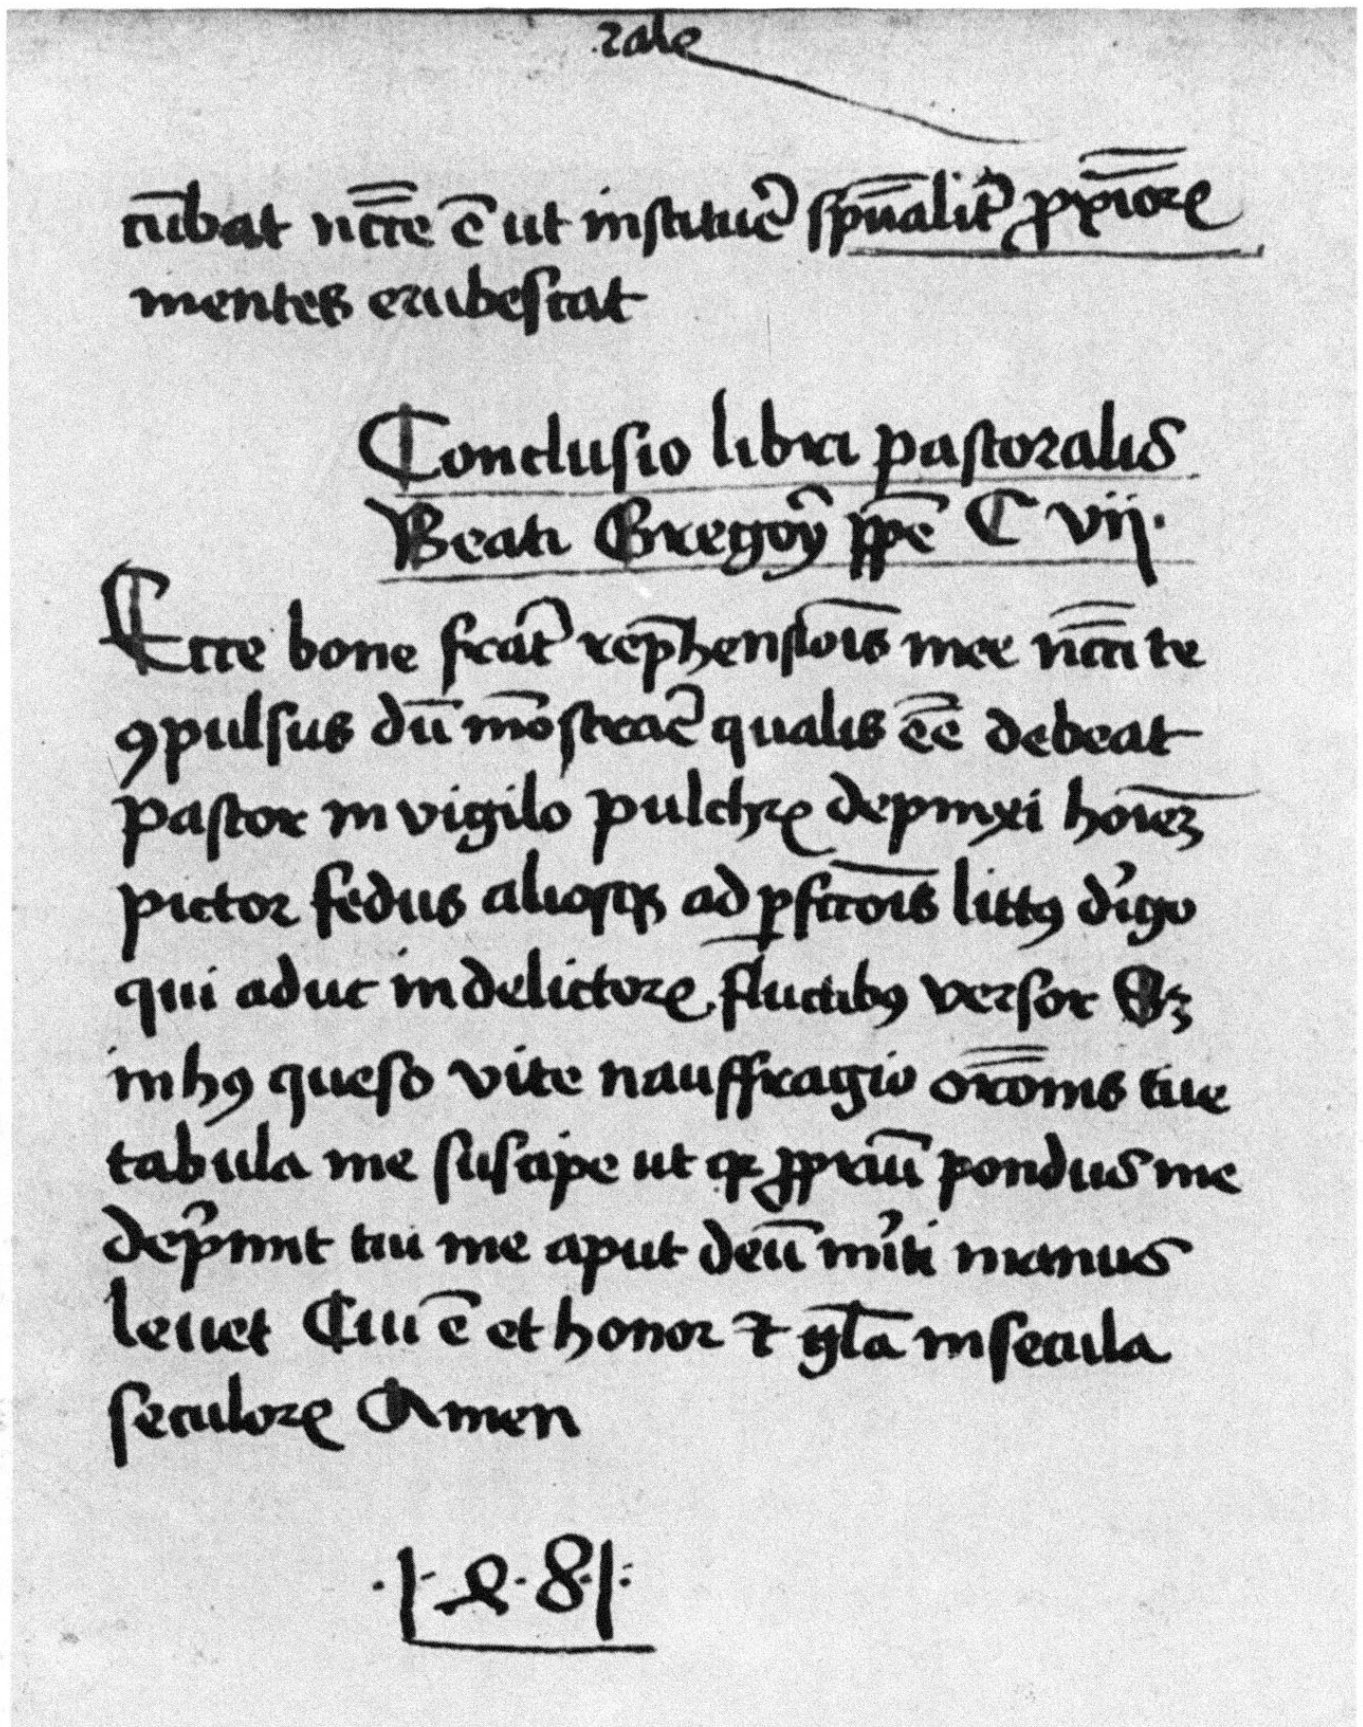 rale
cūbat nc̄cē ē ut instituer̄ spūalit̄ ꝓxīoꝝ
mentes erubescat
Conclusio libri pastoralis
Beati Gregoȳ pp̄e C vij.
Ecce bone frat̄ rep̄hensiōis mee nc̄cite
ꝯpulsus dū mōstrar̄ qualis ēē debeat
pastor invigilo pulchꝝ depinxi hoīeꝫ
pictor fedus aliosqꝫ ad ꝑfcc̄ōis littꝯ dígo
qui aduc in delictoꝝ fluctibꝯ versor Sꝫ
in hꝯ queso vite nauffragio orōnis tue
tabula me suscipe ut qꝛ ꝓpriū pondus me
dep̄mit tui me aput deū míti manus
levet Cui ē et honor ⁊ gl̄a in secula
seculoꝝ Amen